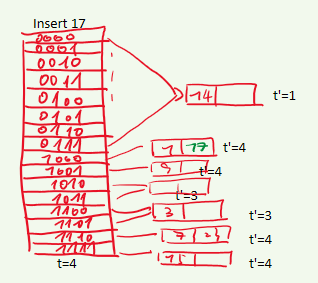 Insert 17
0000
0001
0010
0011
0100
0101
0110
0111
1000
1001
1010
1011
1100
1101
1110
1111
t=4
14 t'=1
1 17 t'=4
9 t'=4
t'=3
3 t'=3
7 23 t'=4
15 t'=4